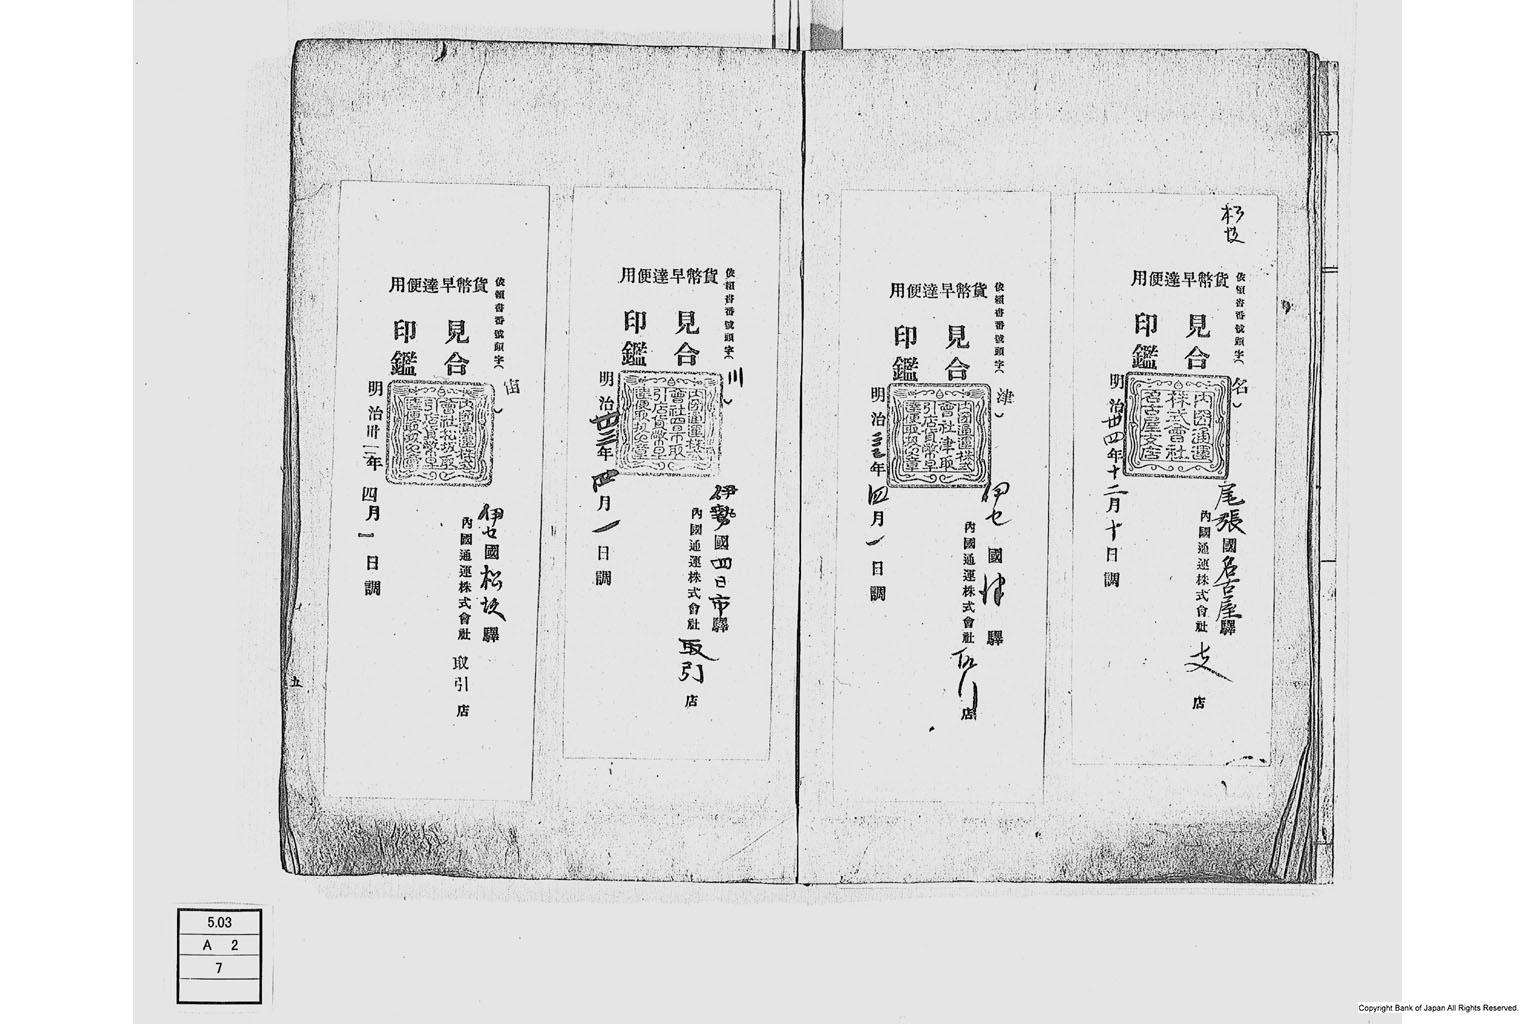 松坂
依頼書番號頭字（名）
貨幣早達便用
見合
印鑑
內國通運
株式會社
名古屋支店
尾張國名古屋驛
內國通運株式會社支店
明治廿四年十二月十日調
依頼書番號頭字（津）
貨幣早達便用
見合
印鑑
內國通運株式
會社津取
引店貨幣早
達便取扱之章
伊セ國津驛
內國通運株式會社取引店
明治三三年四月一日調
依頼書番號頭字（川）
貨幣早達便用
見合
印鑑
內國通運株式
會社四日市取
引店貨幣早
達便取扱之章
伊勢國四日市驛
內國通運株式會社取引店
明治廿三年四月一日調
依頼書番號頭字（）
貨幣早達便用
見合
印鑑
內國通運株式
會社松坂取
引店貨幣早
達便取扱之章
伊セ國松坂驛
內國通運株式會社取引店
明治卅二年四月一日調
五
5.03
A 2
7
Copyright Bank of Japan All Rights Reserved.